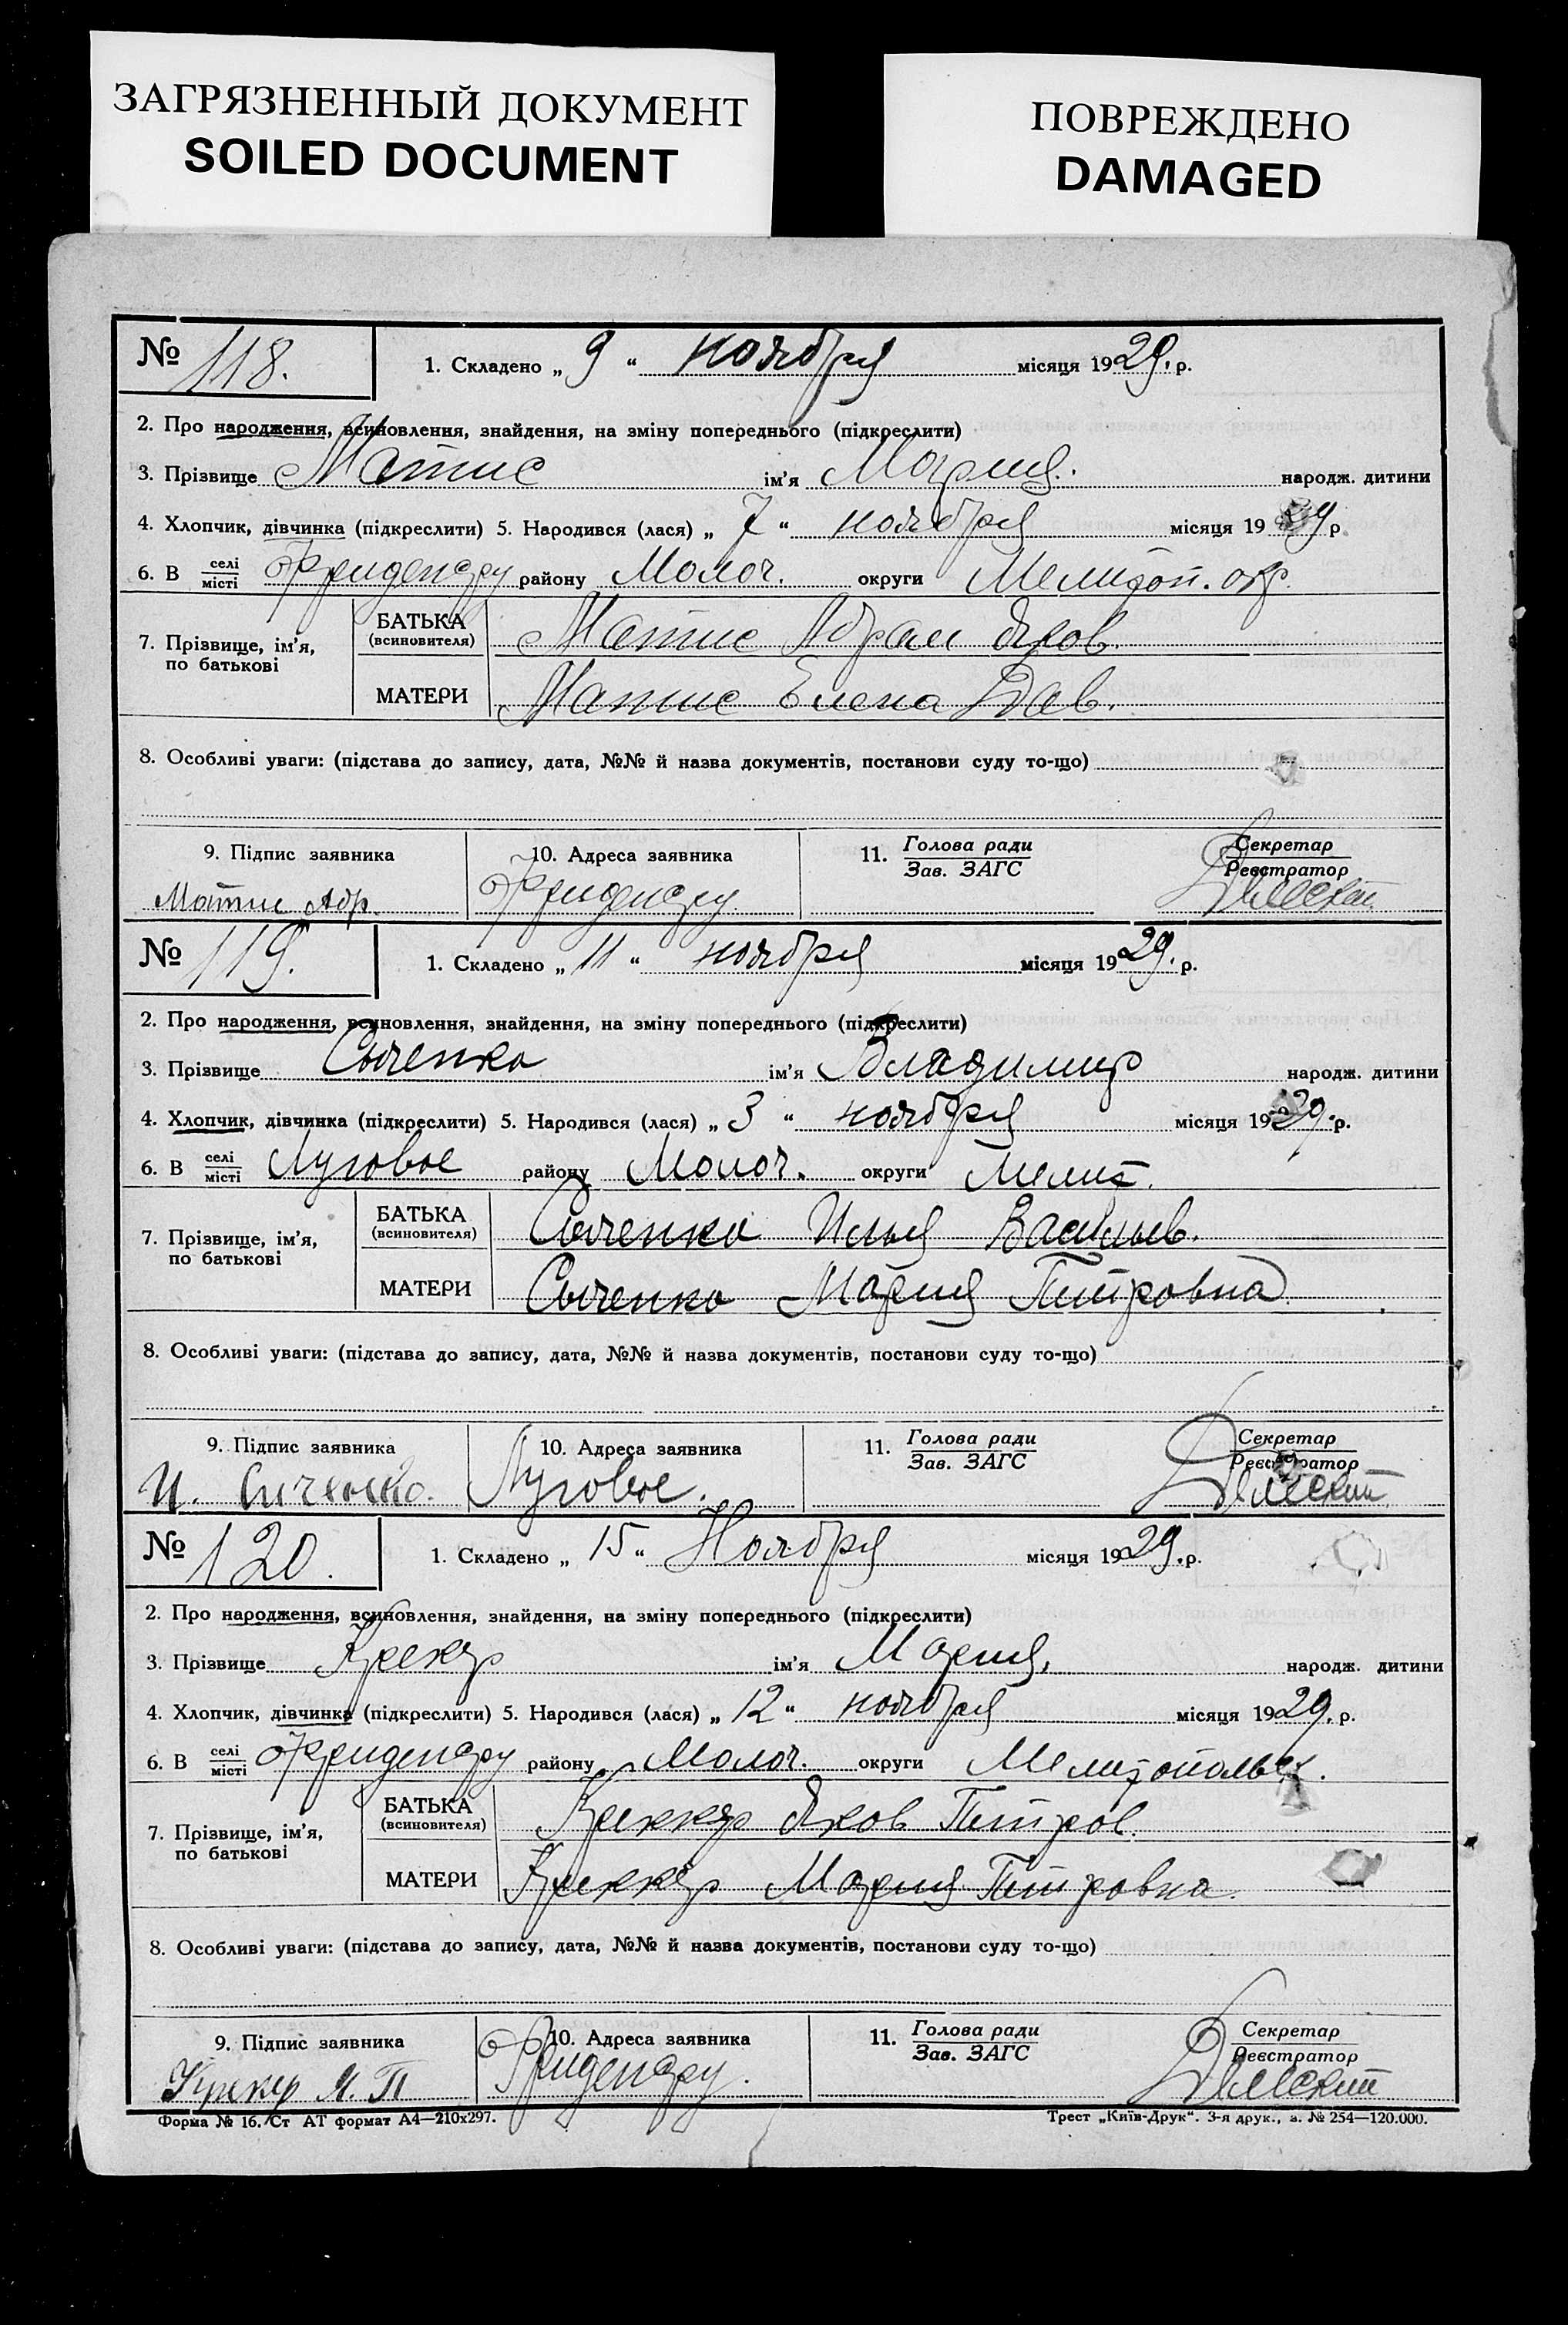 ЗАГРЯЗНЕННЫЙ ДОКУМЕНТ
SOILED DOCUMENT
ПОВРЕЖДЕНО
DAMAGED
№ 118. 1. Складено „ 9 “ ноября місяця 1929. р.
2. Про народження, всиновлення, знайдення, на зміну попереднього (підкреслити)
3. Прізвище Матис ім'я Мария. народж. дитини
4. Хлопчик, дівчинка (підкреслити) 5. Народився (лася) „ 7 “ ноября місяця 19 29 р.
6. В селі/місті Фриденсру району Молоч. округи Мелитоп. окр.
7. Прізвище, ім'я, по батькові
БАТЬКА (всиновителя) Матис Абрам Яков.
МАТЕРИ Матис Елена Дав.
8. Особливі уваги: (підстава до запису, дата, №№ й назва документів, постанови суду то-що)
9. Підпис заявника 10. Адреса заявника 11. Голова ради/Зав. ЗАГС Секретар/Реєстратор
Матис Абр. Фриденсру
№ 119. 1. Складено „ 11 “ ноября місяця 1929. р.
2. Про народження, всиновлення, знайдення, на зміну попереднього (підкреслити)
3. Прізвище Сыченко ім'я Владимир народж. дитини
4. Хлопчик, дівчинка (підкреслити) 5. Народився (лася) „ 3 “ ноября місяця 1929. р.
6. В селі/місті Луговое району Молоч. округи Мелит.
7. Прізвище, ім'я, по батькові
БАТЬКА (всиновителя) Сыченко Илья Васильев.
МАТЕРИ Сыченко Мария Петровна
8. Особливі уваги: (підстава до запису, дата, №№ й назва документів, постанови суду то-що)
9. Підпис заявника 10. Адреса заявника 11. Голова ради/Зав. ЗАГС Секретар/Реєстратор
И. Сиченко. Луговое.
№ 120. 1. Складено „ 15 “ Ноября місяця 1929. р.
2. Про народження, всиновлення, знайдення, на зміну попереднього (підкреслити)
3. Прізвище Крекер ім'я Мария, народж. дитини
4. Хлопчик, дівчинка (підкреслити) 5. Народився (лася) „ 12 “ ноября місяця 1929. р.
6. В селі/місті Фриденсру району Молоч. округи Мелитопольск.
7. Прізвище, ім'я, по батькові
БАТЬКА (всиновителя) Креккер Яков Петров.
МАТЕРИ Креккер Мария Петровна.
8. Особливі уваги: (підстава до запису, дата, №№ й назва документів, постанови суду то-що)
9. Підпис заявника 10. Адреса заявника 11. Голова ради/Зав. ЗАГС Секретар/Реєстратор
Крекер Я. П Фриденсру.
Форма № 16. Ст АТ формат А4—210x297. Трест „Київ-Друк“. 3-я друк., з. № 254—120.000.